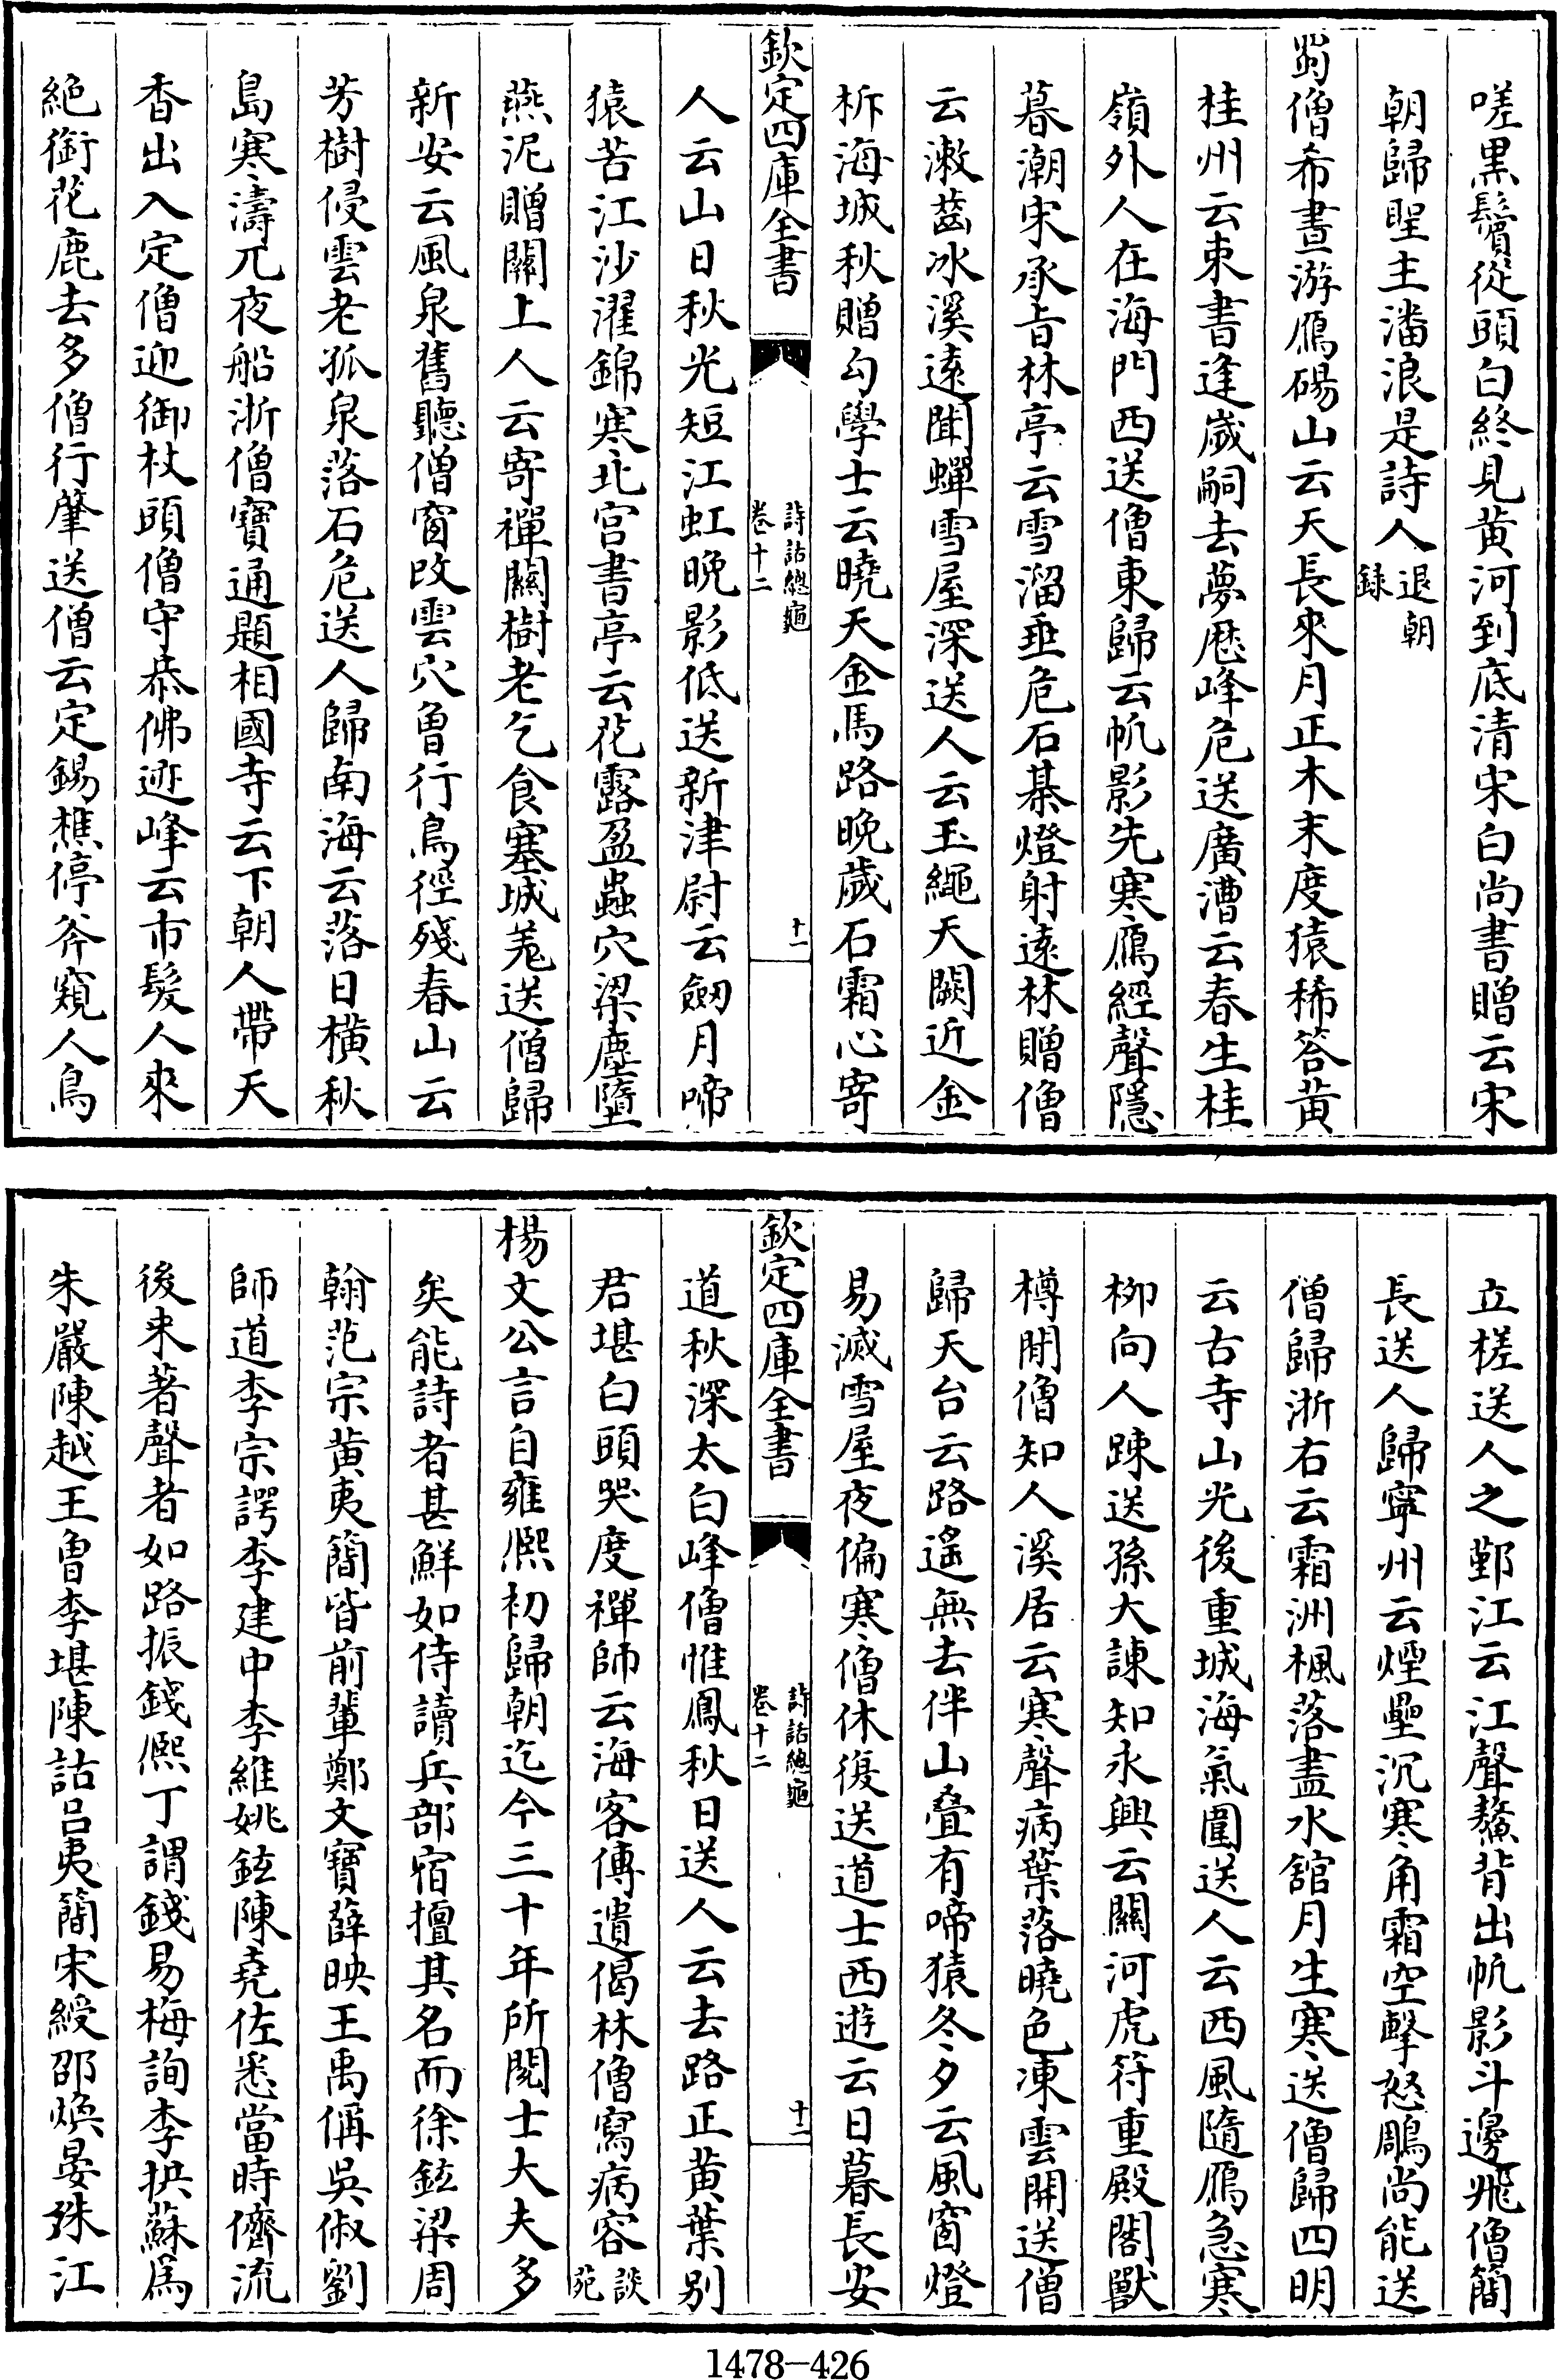 嗟黒鬢從頭白終見黄河到底清宋白尚書贈云宋
朝歸聖主潘浪是詩人退朝録
蜀僧希晝游鴈碭山云天長來月正木末度猿稀答黄
桂州云束書逢歲嗣去夢厯峰危送廣漕云春生桂
嶺外人在海門西送僧東歸云帆影先寒鴈經聲隱
暮潮宋承㫖林亭云雪溜垂危石棊燈射遠林贈僧
云漱齒冰溪遠聞蟬雪屋深送人云玉繩天闕近金
柝海城秋贈勾學士云曉天金馬路晚歲石霜心寄
欽定四庫全書
詩話總龜
卷十二
十一
人云山日秋光短江虹晚影低送新津尉云劒月啼
猿苦江沙濯錦寒北宫書亭云花露盈蟲穴梁塵墮
燕泥贈關上人云寄禪關樹老乞食塞城荒送僧歸
新安云風泉舊聽僧窗改雲穴曾行鳥徑殘春山云
芳樹侵雲老孤泉落石危送人歸南海云落日横秋
島寒濤兀夜船浙僧寶通題相國寺云下朝人帶天
香出入定僧迎御杖頭僧守恭佛迹峰云市髮人來
絶銜花鹿去多僧行肇送僧云定錫樵停斧窺人鳥
立槎送人之鄞江云江聲鰲背出帆影斗邊飛僧簡
長送人歸寜州云煙壘沉寒角霜空擊怒鵰尚能送
僧歸浙右云霜洲楓落盡水舘月生寒送僧歸四明
云古寺山光後重城海氣圍送人云西風隨鴈急寒
栁向人踈送孫大諫知永興云關河虎符重殿閣獸
樽閒僧知人溪居云寒聲病葉落曉色凍雲開送僧
歸天台云路遥無去伴山叠有啼猿冬夕云風窗燈
易滅雪屋夜偏寒僧休復送道士西遊云日暮長安
欽定四庫全書
詩話總龜
卷十二
十二
道秋深太白峰僧惟鳳秋日送人云去路正黄葉别
君堪白頭哭度禪師云海客傳遺偈林僧寫病容談苑
楊文公言自雍熙初歸朝迄今三十年所閱士大夫多
矣能詩者甚鮮如侍讀兵部宿擅其名而徐鉉梁周
翰范宗黄夷簡皆前輩鄭文寶薛映王禹偁吳俶劉
師道李宗諤李建中李維姚鉉陳堯佐悉當時儕流
後来著聲者如路振錢熙丁謂錢易梅詢李拱蘇為
朱嚴陳越王曾李堪陳詁吕夷簡宋綬邵煥晏殊江
1478—426